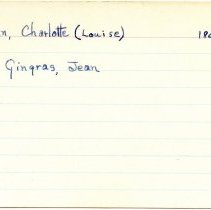 n, Charlotte (Louise) 180
Gingras, Jean